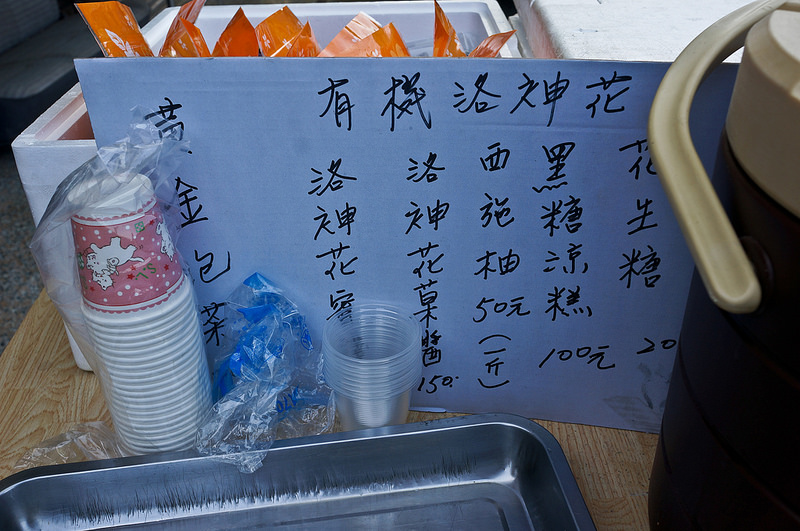 有機洛神花
花生糖 20
黑糖涼糕 100元
西施柚 50元(一斤)
洛神花菓醬 150.
洛神花蜜
黃金包菜